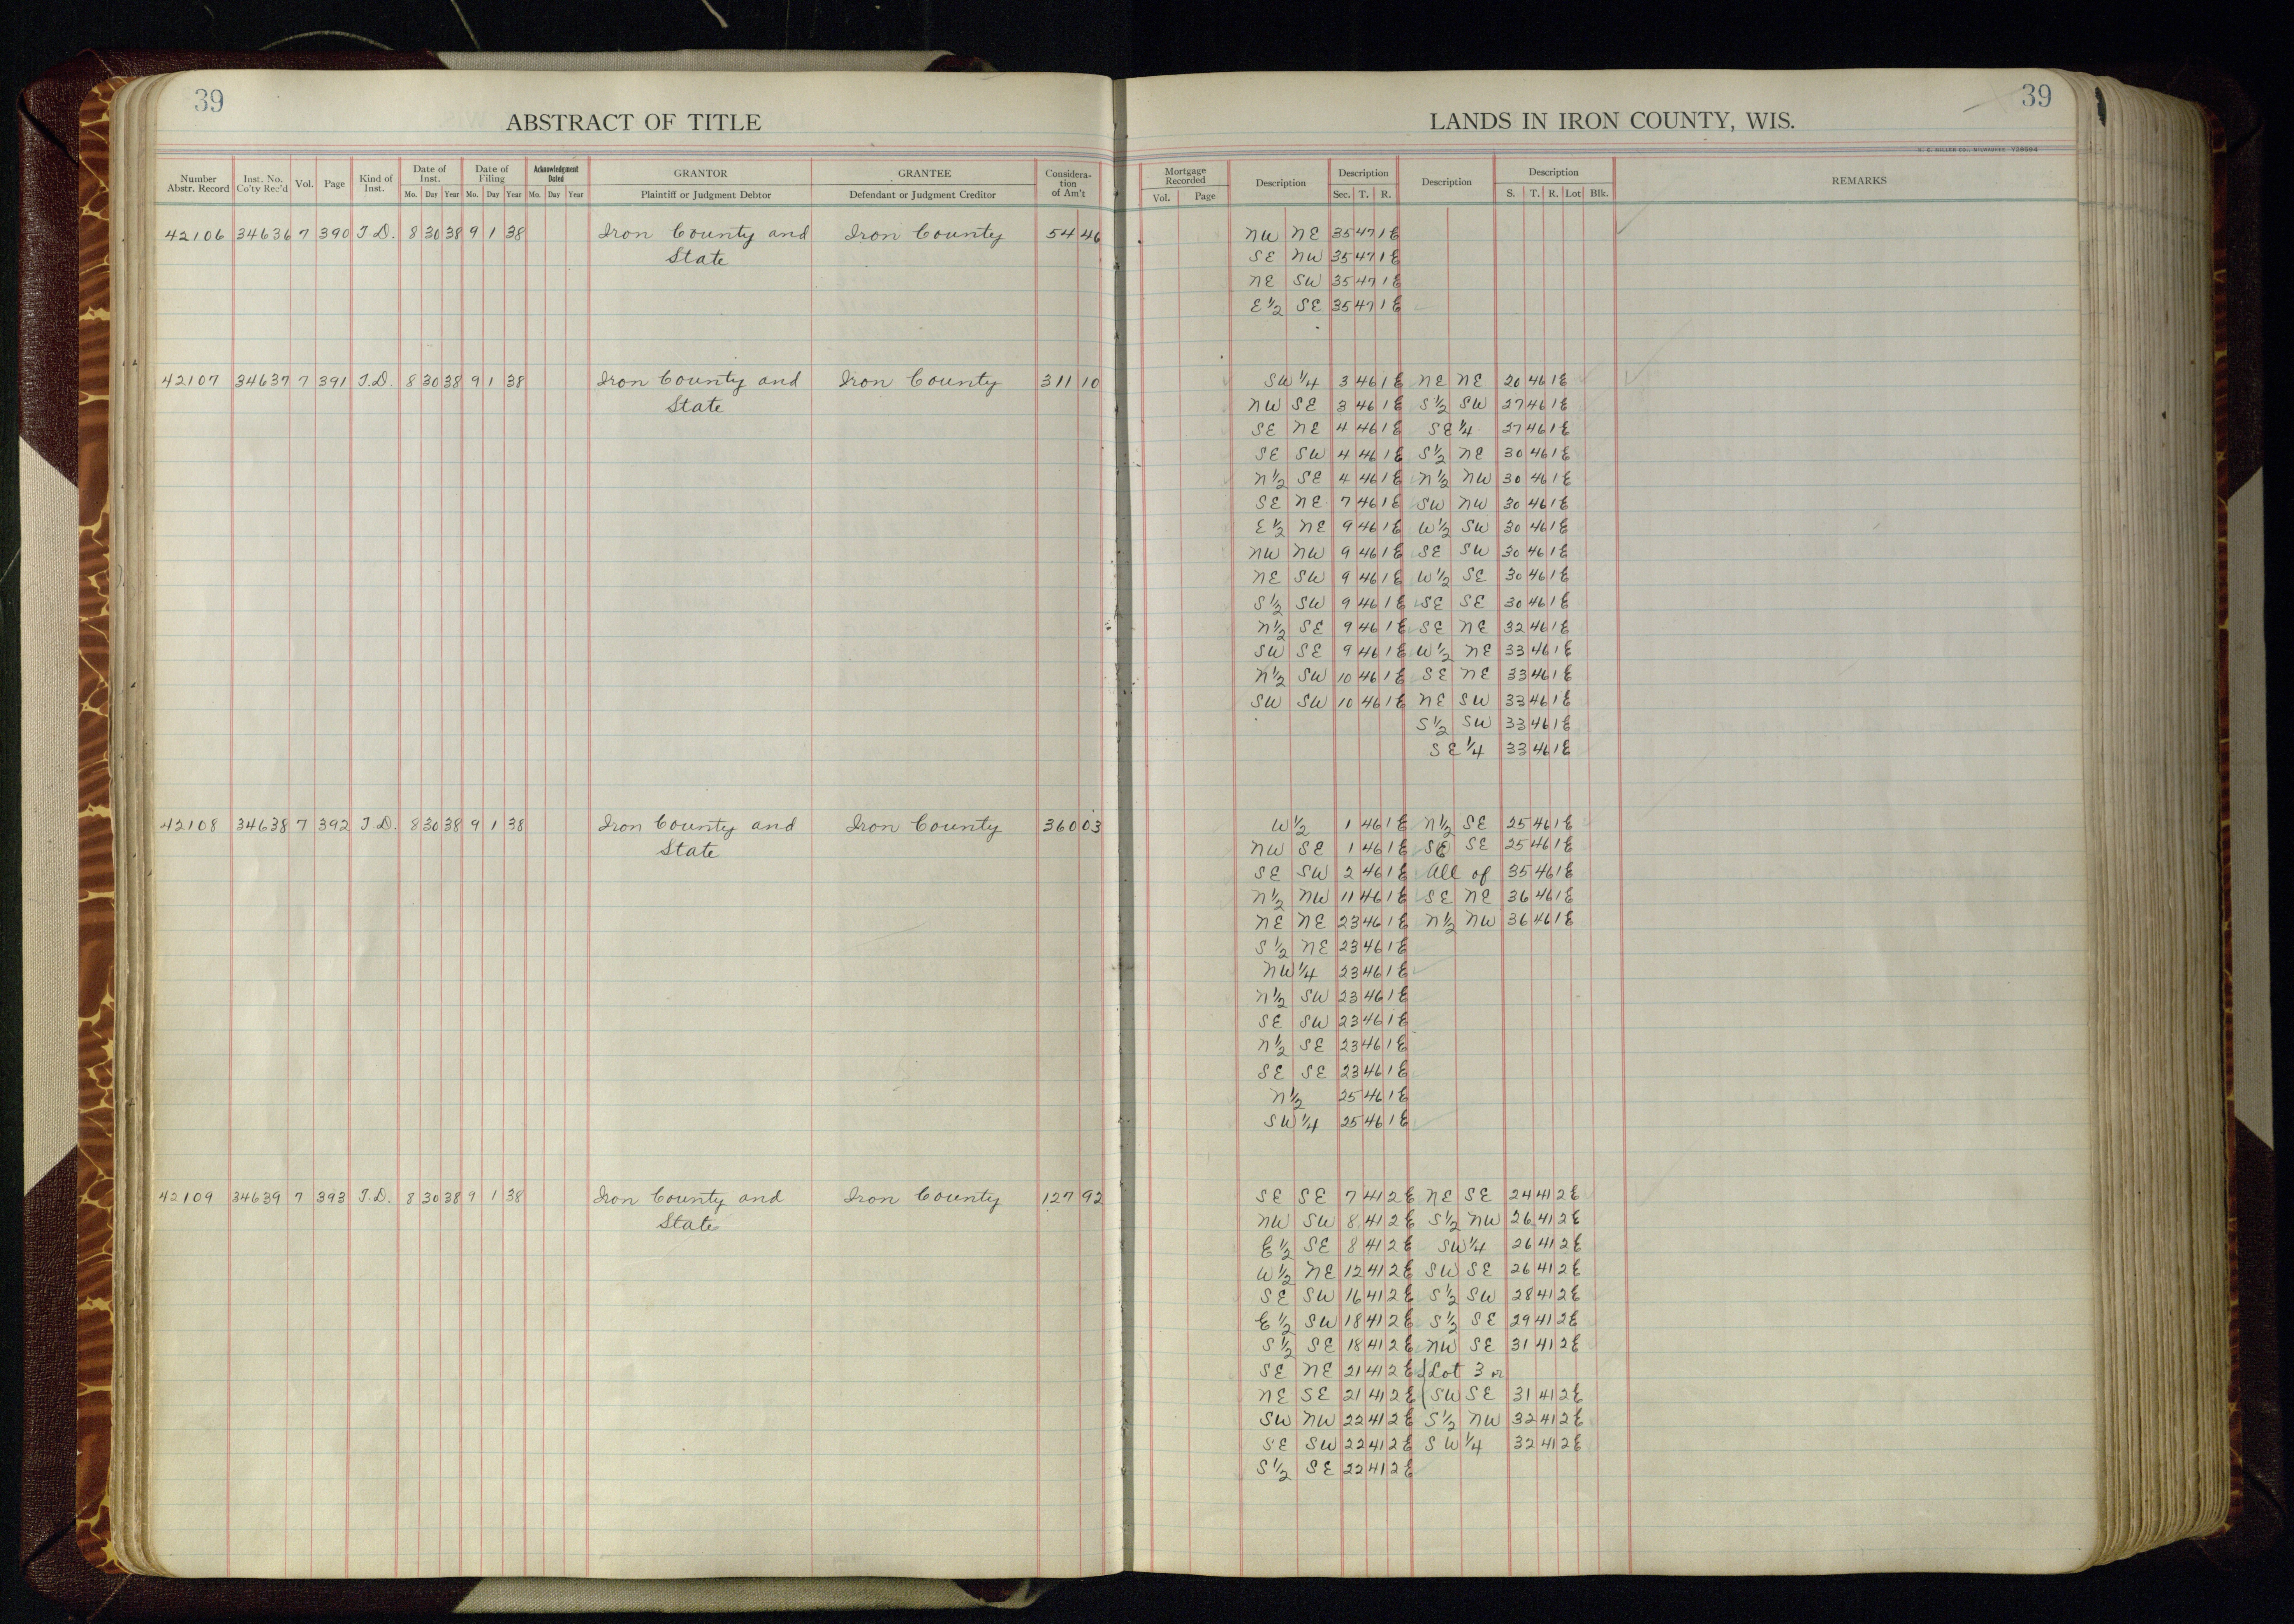 39
ABSTRACT OF TITLE
Number Abstr. Record Inst. No. Co'ty Rec'd Vol. Page Kind of Inst. Date of Inst. Mo. Day Year Date of Filing Mo. Day Year Acknowledgment Dated Mo. Day Year GRANTOR Plaintiff or Judgment Debtor GRANTEE Defendant or Judgment Creditor Considera-tion of Am't
42106 34636 7 390 T.D. 8 30 38 9 1 38 Iron County and Iron County 54 46
State
42107 34637 7 391 T.D. 8 30 38 9 1 38 Iron County and Iron County 311 10
State
42108 34638 7 392 T.D. 8 30 38 9 1 38 Iron County and Iron County 360 03
State
42109 34639 7 393 T.D. 8 30 38 9 1 38 Iron County and Iron County 127 92
State
39
LANDS IN IRON COUNTY, WIS.
H. C. MILLER CO., MILWAUKEE
Mortgage Recorded Vol. Page Description Description Sec. T. R. Description Description S. T. R. Lot Blk. REMARKS
NW NE 35 47 1E
SE NW 35 47 1E
NE SW 35 47 1E
E½ SE 35 47 1E
SW¼ 3 46 1E NE NE 20 46 1E
NW SE 3 46 1E S½ SW 27 46 1E
SE NE 4 46 1E SE¼ 27 46 1E
SE SW 4 46 1E S½ NE 30 46 1E
N½ SE 4 46 1E N½ NW 30 46 1E
SE NE 7 46 1E SW NW 30 46 1E
E½ NE 9 46 1E W½ SW 30 46 1E
NW NW 9 46 1E SE SW 30 46 1E
NE SW 9 46 1E W½ SE 30 46 1E
S½ SW 9 46 1E SE SE 30 46 1E
N½ SE 9 46 1E SE NE 32 46 1E
SW SE 9 46 1E W½ NE 33 46 1E
N½ SW 10 46 1E SE NE 33 46 1E
SW SW 10 46 1E NE SW 33 46 1E
S½ SW 33 46 1E
SE¼ 33 46 1E
W½ 1 46 1E N½ SE 25 46 1E
NW SE 1 46 1E SE SE 25 46 1E
SE SW 2 46 1E All of 35 46 1E
N½ NW 11 46 1E SE NE 36 46 1E
NE NE 23 46 1E N½ NW 36 46 1E
S½ NE 23 46 1E
NW¼ 23 46 1E
N½ SW 23 46 1E
SE SW 23 46 1E
N½ SE 23 46 1E
SE SE 23 46 1E
N½ 25 46 1E
SW¼ 25 46 1E
SE SE 7 41 2E NE SE 24 41 2E
NW SW 8 41 2E S½ NW 26 41 2E
E½ SE 8 41 2E SW¼ 26 41 2E
W½ NE 12 41 2E SW SE 26 41 2E
SE SW 16 41 2E S½ SW 28 41 2E
E½ SW 18 41 2E S½ SE 29 41 2E
S½ SE 18 41 2E NW SE 31 41 2E
SE NE 21 41 2E Lot 3 or
NE SE 21 41 2E SW SE 31 41 2E
SW NW 22 41 2E S½ NW 32 41 2E
SE SW 22 41 2E SW¼ 32 41 2E
S½ SE 22 41 2E